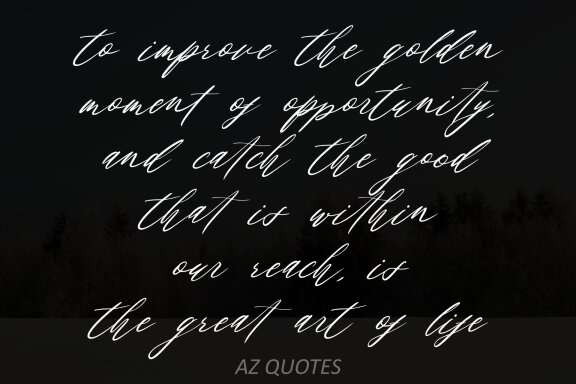 to improve the golden
moment of opportunity,
and catch the good
that is within
our reach, is
the great art of life
AZ QUOTES